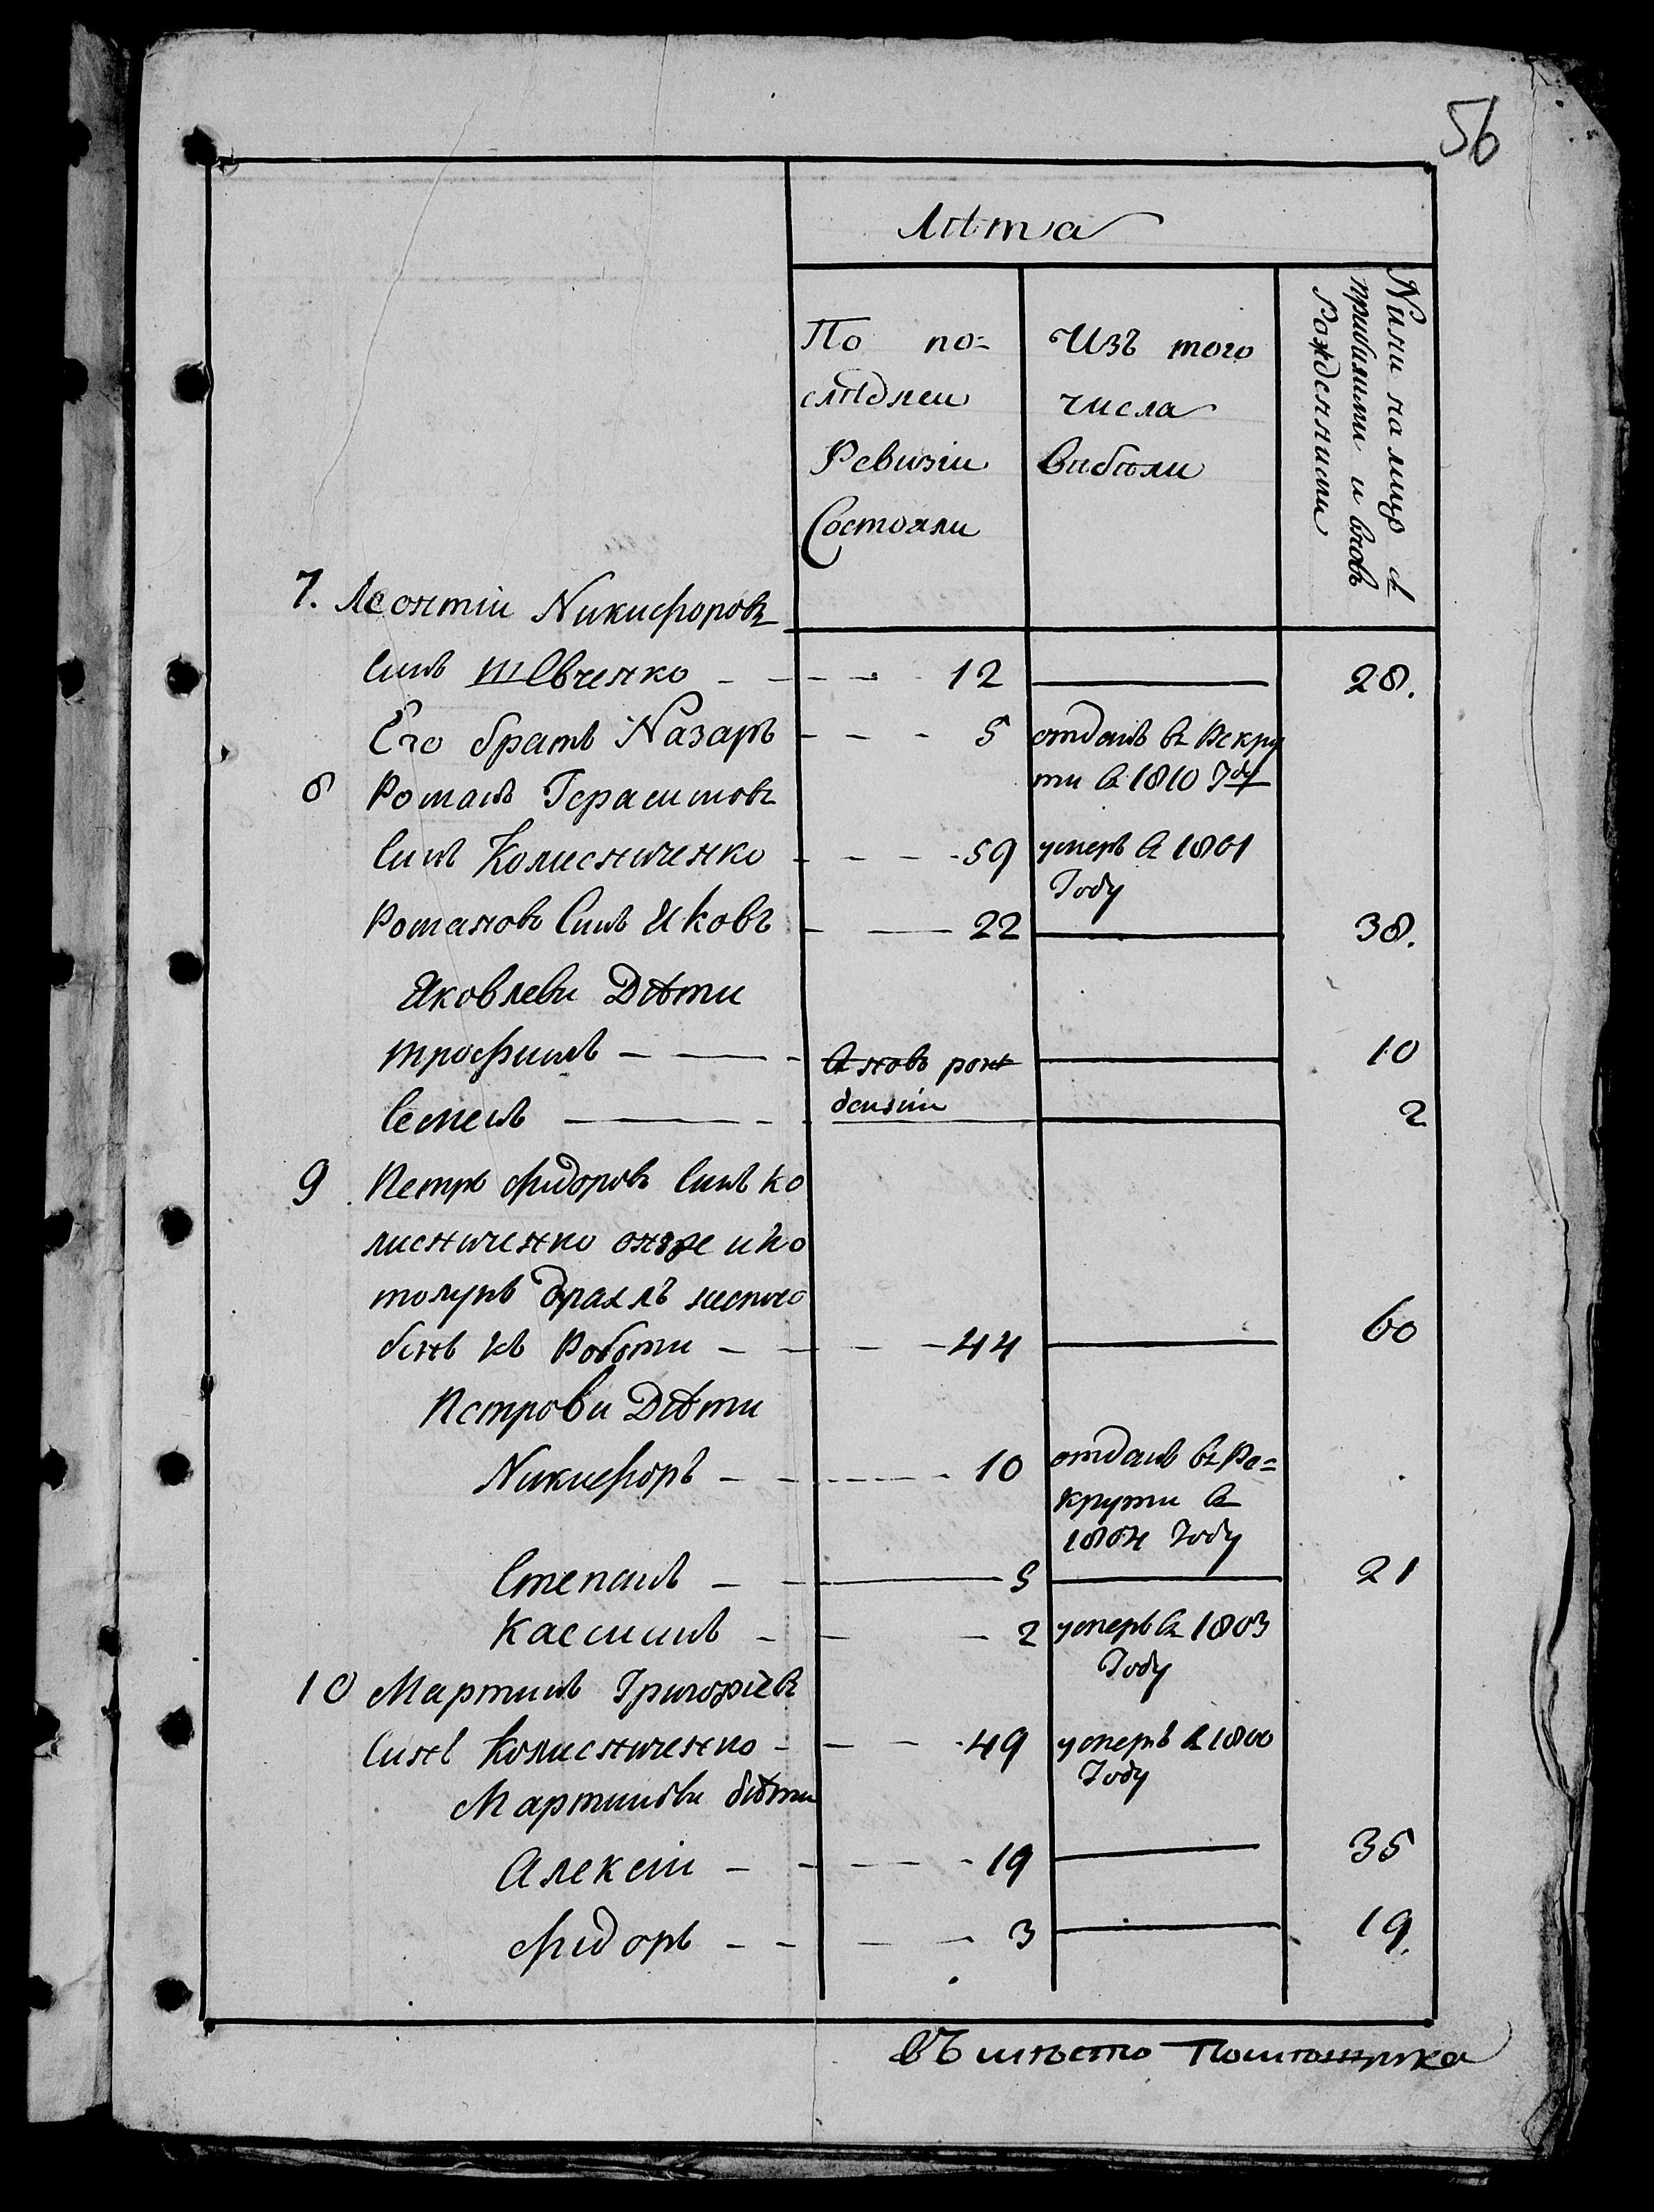 56
Лѣта
По по=
слѣднеи
Ревизіи
Состояли
Изъ того
числа
вибили
Нини на лицо съ
прибилими и вновь
Рожденними
7. Леонтіи Никифоровъ
Синъ Шевченко - - - - 12 ——— 28.
Его братъ Назаръ - - - 5 отданъ въ Рекру
ти въ 1810 Году
8 Романъ Герасимовъ
Синъ Колисниченко - - - - 59 умеръ въ 1801
Году
Романовъ Синъ Яковъ - — 22 ——— 38.
Яковлеви Дѣти
трофимъ - — - вновь рож ——— 10
Семенъ — - - денніи ——— 2
9 Петръ Фидоровъ Синъ ко
лисниченко онже и по
толупъ драхлъ неспосо
бенъ къ Роботи - - - - 44 ——— 60
Петрови Дѣти
Никифоръ - - - - - 10 отданъ въ Ре=
крути въ
1804 Году
Степанъ - - — 5 ——— 21
Касиянъ - - - 2 умеръ въ 1803
Году
10 Мартинъ Григориевъ
Синъ Колисниченко - - - - 49 умеръ въ 1800
Году
Мартинови дѣти
Алексіи - - - - - 19 ——— 35
Фидоръ - - - - 3 ——— 19.
въ мѣсто Помѣщика